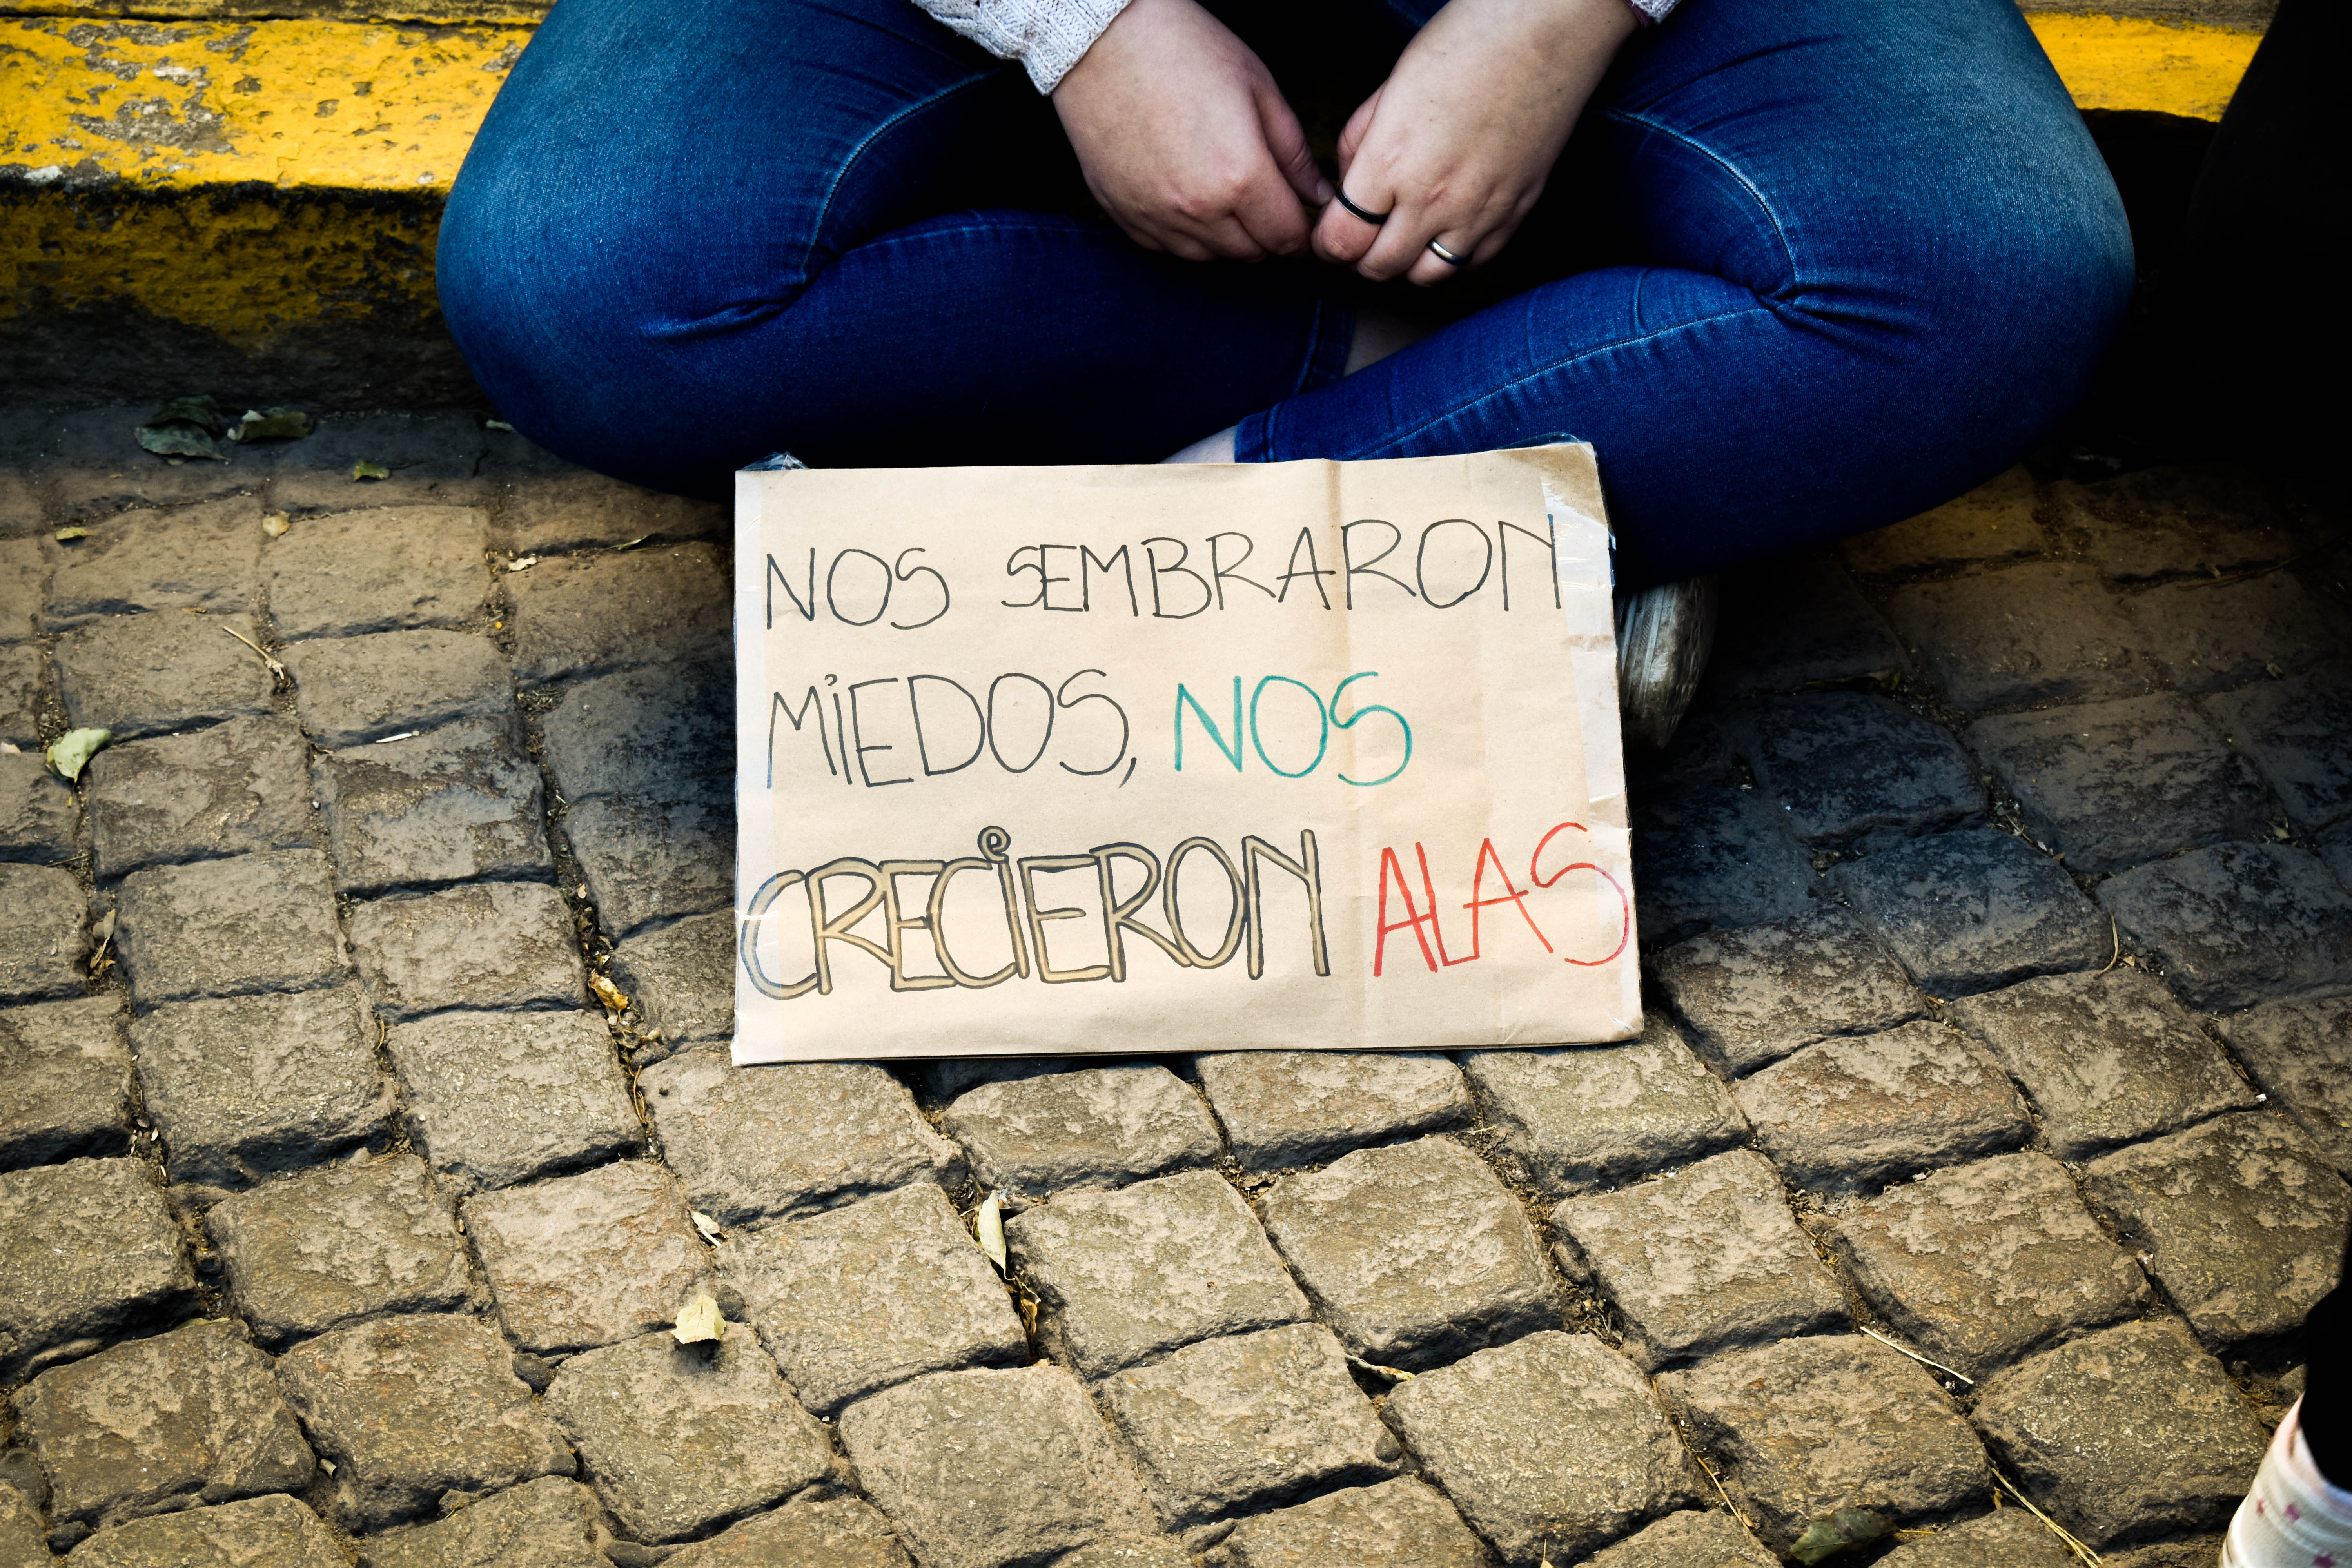 NOS SEMBRARON
MIEDOS, NOS
CRECIERON ALAS